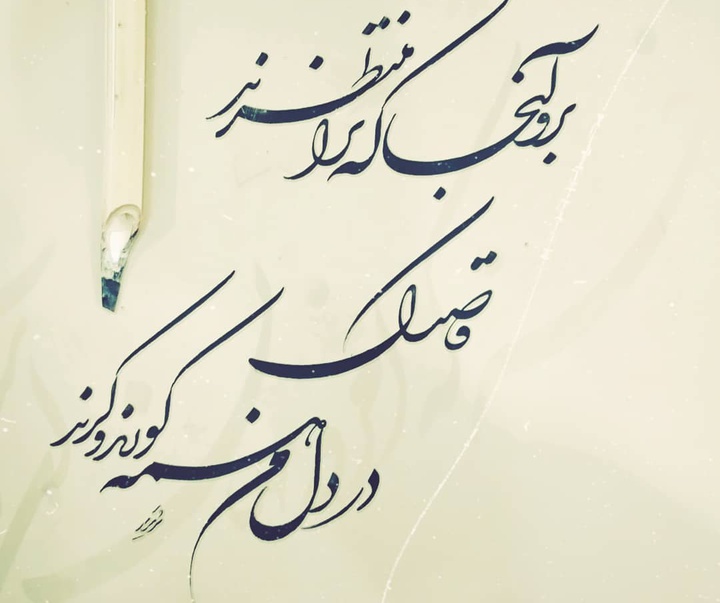 برو آنجا که ترا منتظرند
قاصدک
در دل من همه کورند و کرند